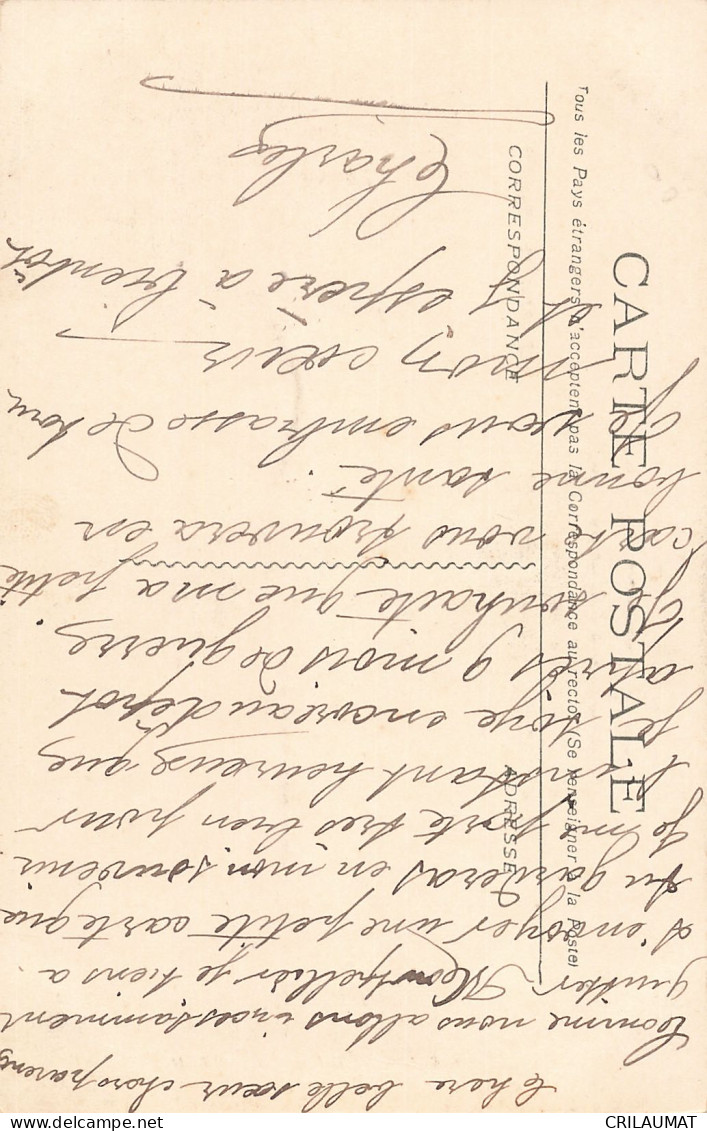 CARTE POSTALE
Tous les Pays étrangers n'acceptent pas la Correspondance au recto. (Se renseigner à la Poste)
CORRESPONDANCE
ADRESSE
Chere belle sœur chers parents
Comme nous allons incessamment
quitter Montpellier je tiens a
t'envoyer une petite carte que
tu garderas en mon souvenir
Je me porte tres bien pour
l'instant heureux que
je soye encore au dépot
après 9 mois de guerre
Je souhaite que ma petite
carte vous trouvera en
bonne santé.
Je vous embrasse de tous
mon cœur
et j espère à bientot
Charles
CRILAUMAT